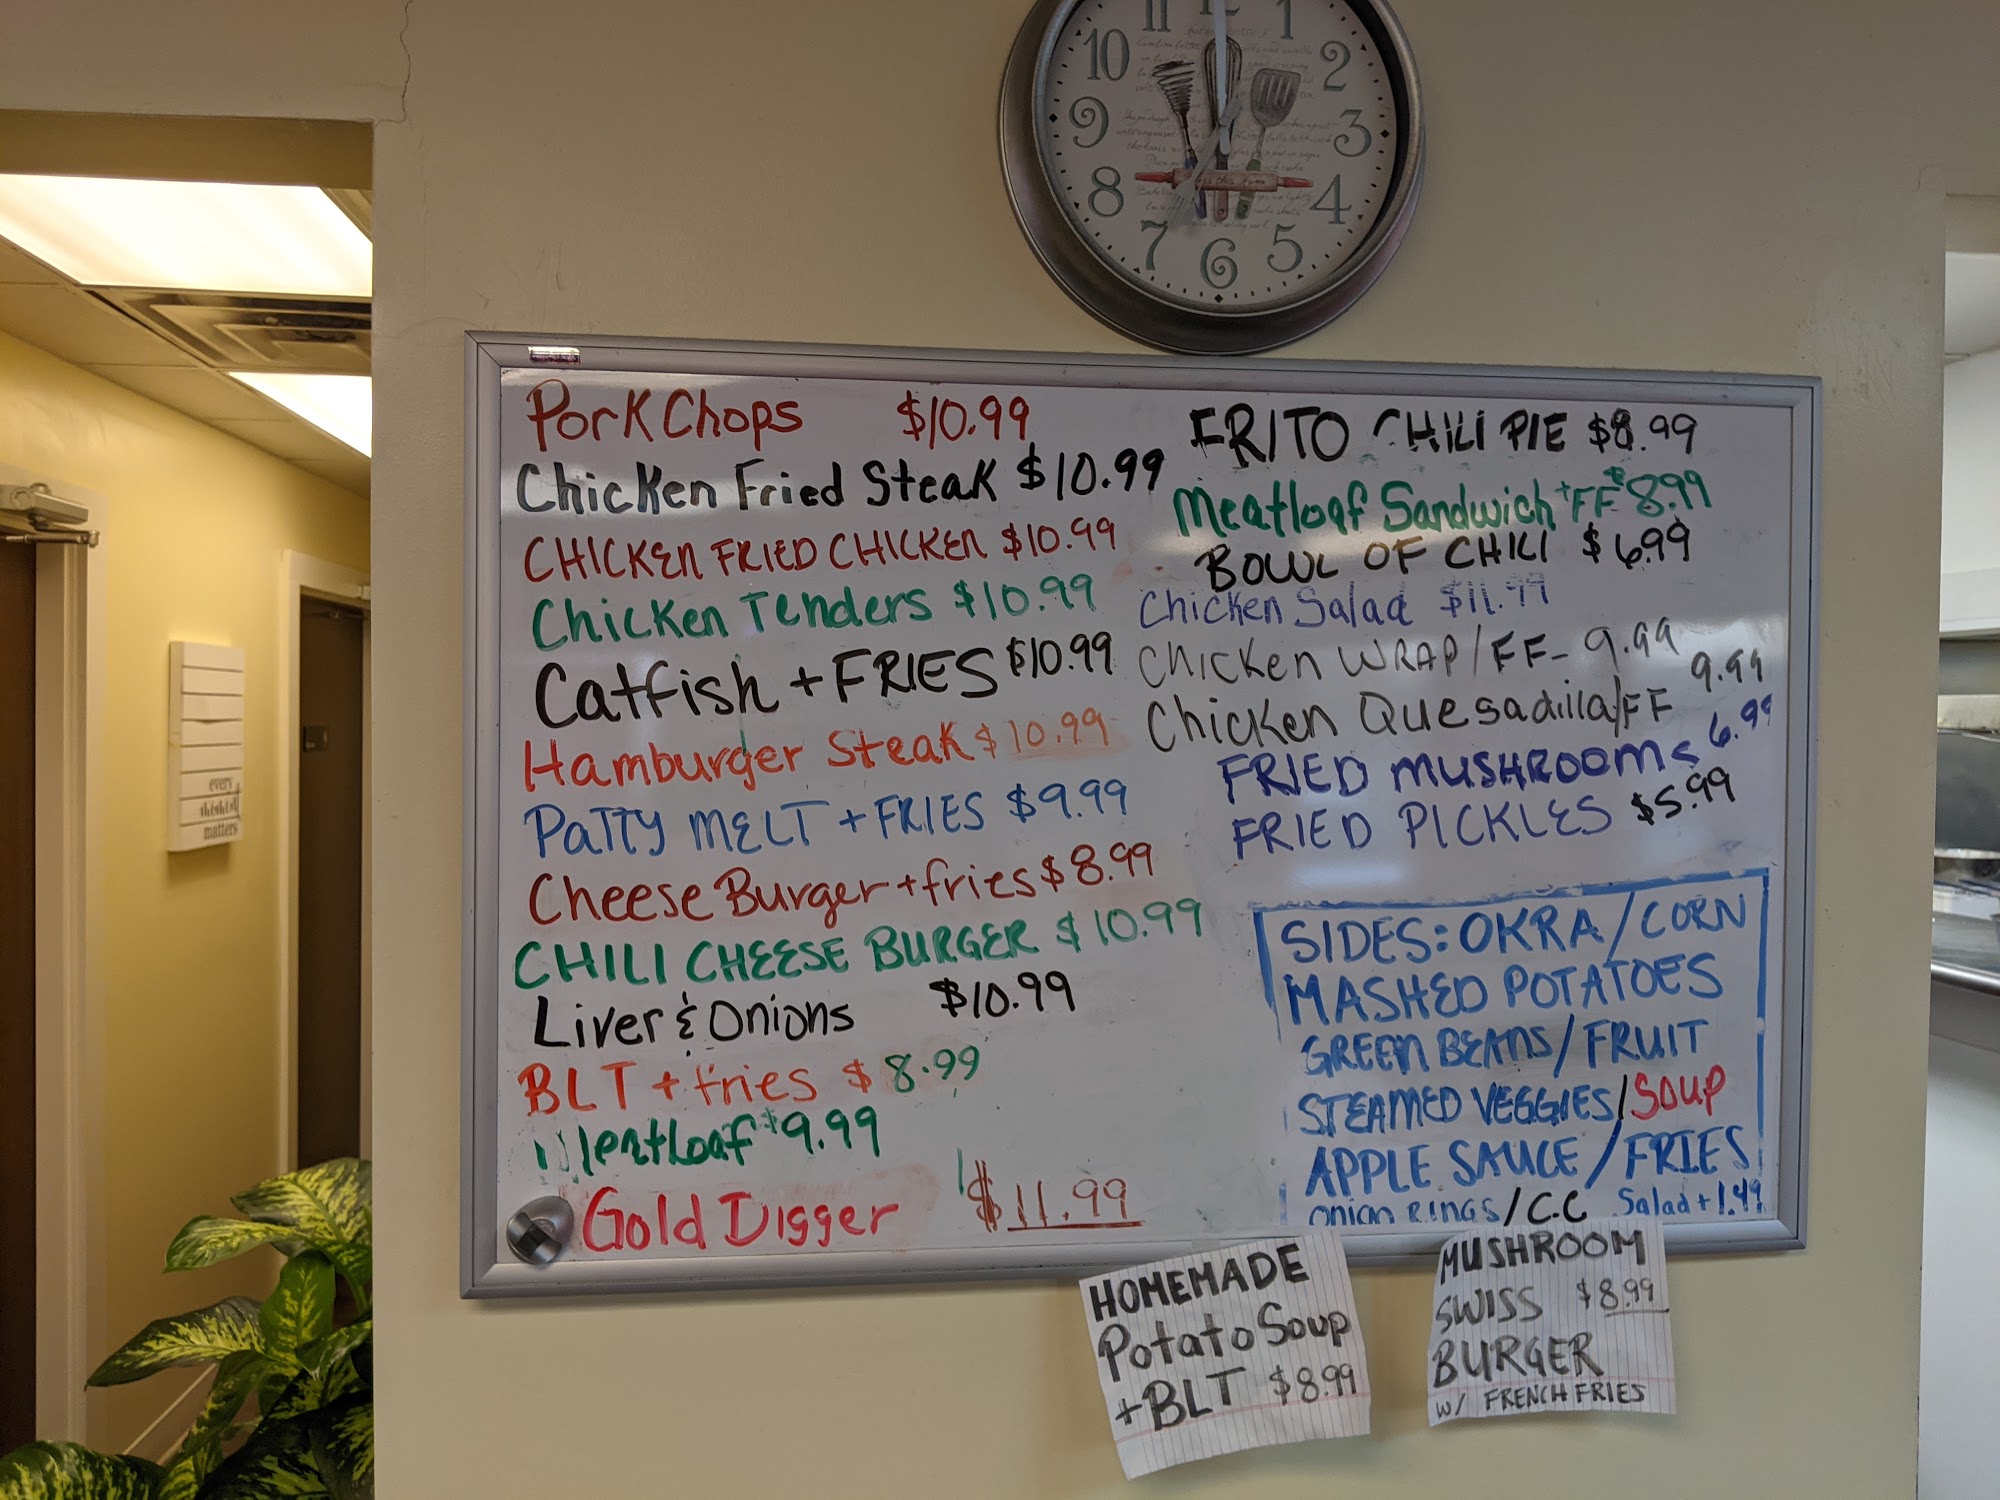 11 12 1
10 2
9 3
8 4
7 6 5
every
matters
Pork Chops $10.99
Chicken Fried Steak $10.99
CHICKEN FRIED CHICKEN $10.99
Chicken Tenders $10.99
Catfish + FRIES $10.99
Hamburger Steak $10.99
Patty MELT + FRIES $9.99
Cheese Burger + fries $8.99
CHILI CHEESE BURGER $10.99
Liver & Onions $10.99
BLT + fries $8.99
Meatloaf $9.99
Gold Digger $11.99
FRITO CHILI PIE $8.99
Meatloaf Sandwich + FF $8.99
BOWL OF CHILI $6.99
Chicken Salad $11.99
Chicken WRAP/FF- 9.99
Chicken Quesadilla/FF 9.99
FRIED MUSHROOMS 6.99
FRIED PICKLES $5.99
SIDES: OKRA/CORN
MASHED POTATOES
GREEN BEANS/FRUIT
STEAMED VEGGIES/SOUP
APPLE SAUCE/FRIES
ONION RINGS/C.C Salad + 1.49
HOMEMADE
Potato Soup
+BLT $8.99
MUSHROOM
SWISS $8.99
BURGER
W/ FRENCH FRIES